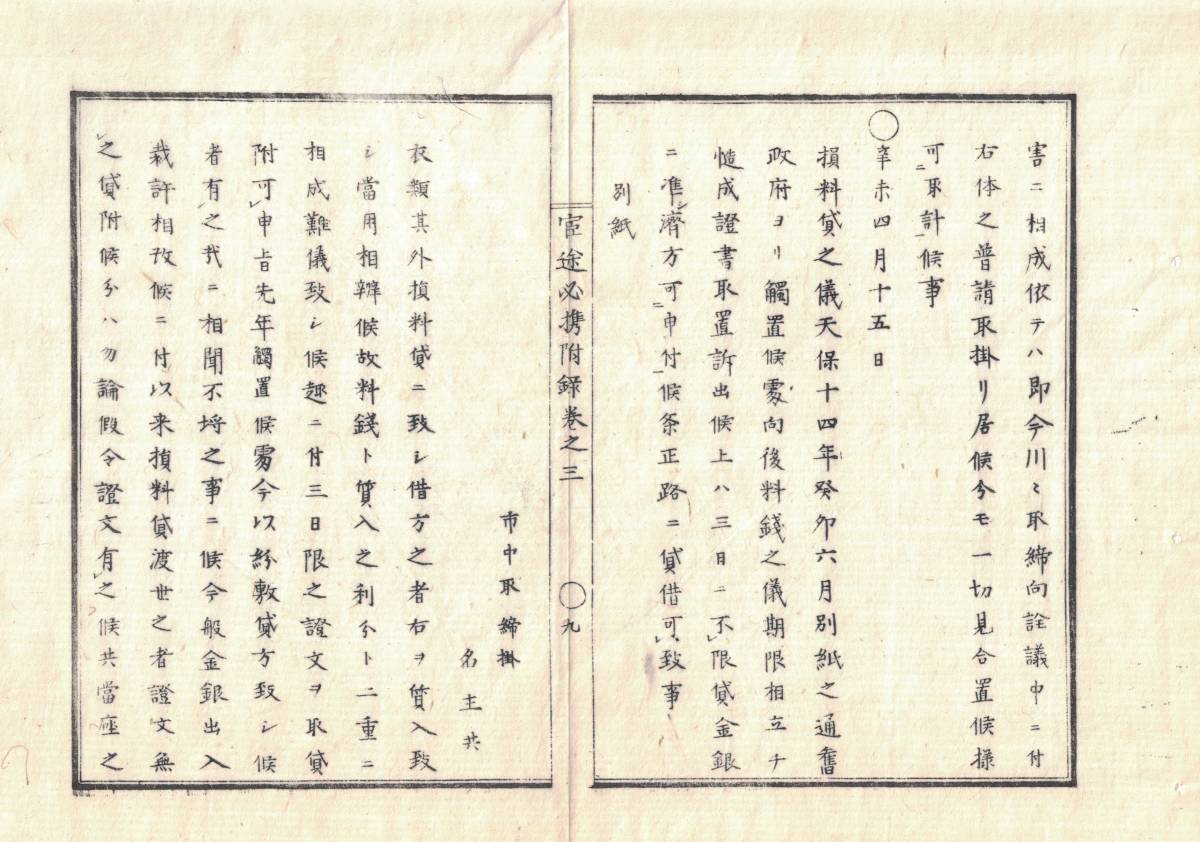 害ニ相成依テハ即今川々取締向詮議中ニ付
右体之普請取掛リ居候分モ一切見合置候様
可取計候事
○辛未四月十五日
損料貸之儀天保十四年癸卯六月別紙之通舊
政府ヨリ觸置候處向後料錢之儀期限相立チ
慥成證書取置訴出候上ハ三日ニ不限貸金銀
ニ準シ濟方可申付候条正路ニ貸借可致事
別紙
宦途必携附録巻之三 ○九
市中取締掛
名主共
衣類其外損料貸ニ致シ借方之者右ヲ質入致
シ當用相辨候故料錢ト質入之利分ト二重ニ
相成難儀致シ候趣ニ付三日限之證文ヲ取貸
附可申旨先年觸置候處今以紛敷貸方致シ候
者有之哉ニ相聞不埒之事ニ候今般金銀出入
裁許相改候ニ付以来損料貸渡世之者證文無
之貸附候分ハ勿論假令證文有之候共當座之